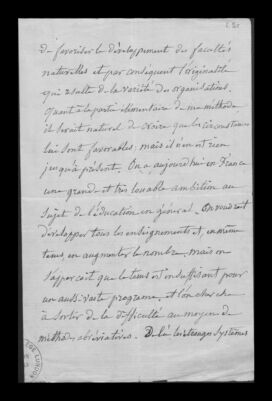 de favoriser le développement des facultés
naturelles et par conséquent l'originalité
qui résulte de la variété des organisations.
Quant à la partie élémentaire de ma méthode
il serait naturel de croire que les circonstances
lui sont favorables; mais il n'en est rien
jusqu'à présent. On a aujourd'hui en France
une grande et très louable ambition au
sujet de l'éducation en général. On voudrait
développer tous les enseignements et, en même
tems, en augmenter le nombre, mais on
s'apperçoit que le tems est insuffisant pour
un aussi vaste programe, et l'on cherche
à sortir de la difficulté au moyen de
méthodes abréviatives. De là les étranges systèmes